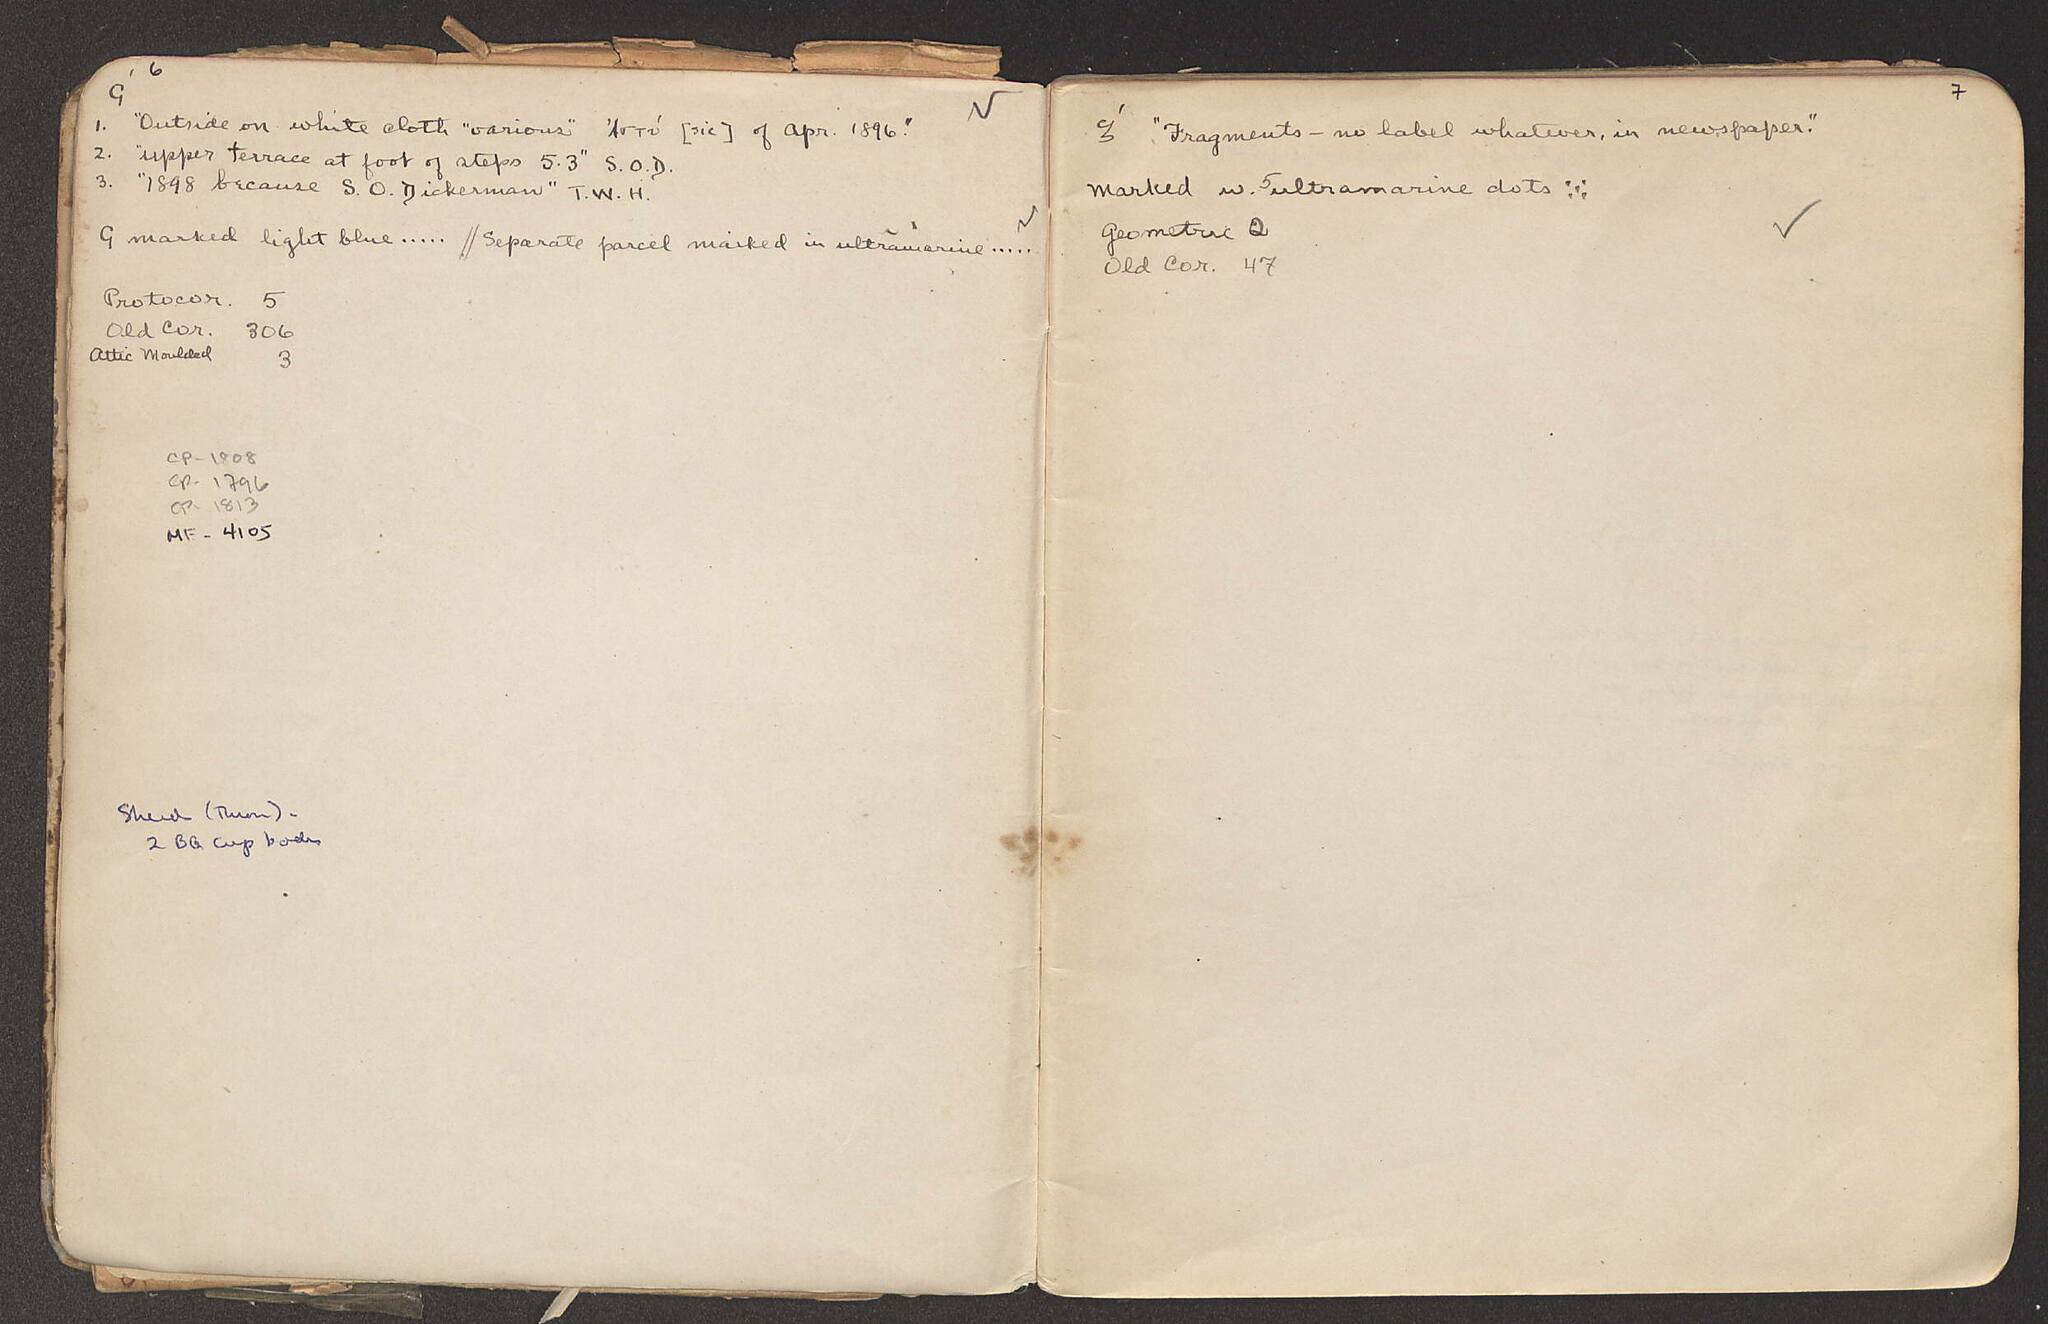 6
G'
1. "Outside on white cloth "various" [sic] of Apr. 1896."
2. "upper terrace at foot of steps 5.3" S.O.D.
3. "1898 because S. O. Dickerman" T.W.H.
G marked light blue ..... // Separate parcel marked in ultramarine .....
Protocor. 5
Old Cor. 306
Attic Moulded 3
CP- 1808
CP- 1796
CP- 1813
MF - 4105
(Thorn) -
2 BG cup
7
"Fragments – no label whatever, in newspaper."
Marked w. 5 ultramarine dots
Geometric 2
Old Cor. 47